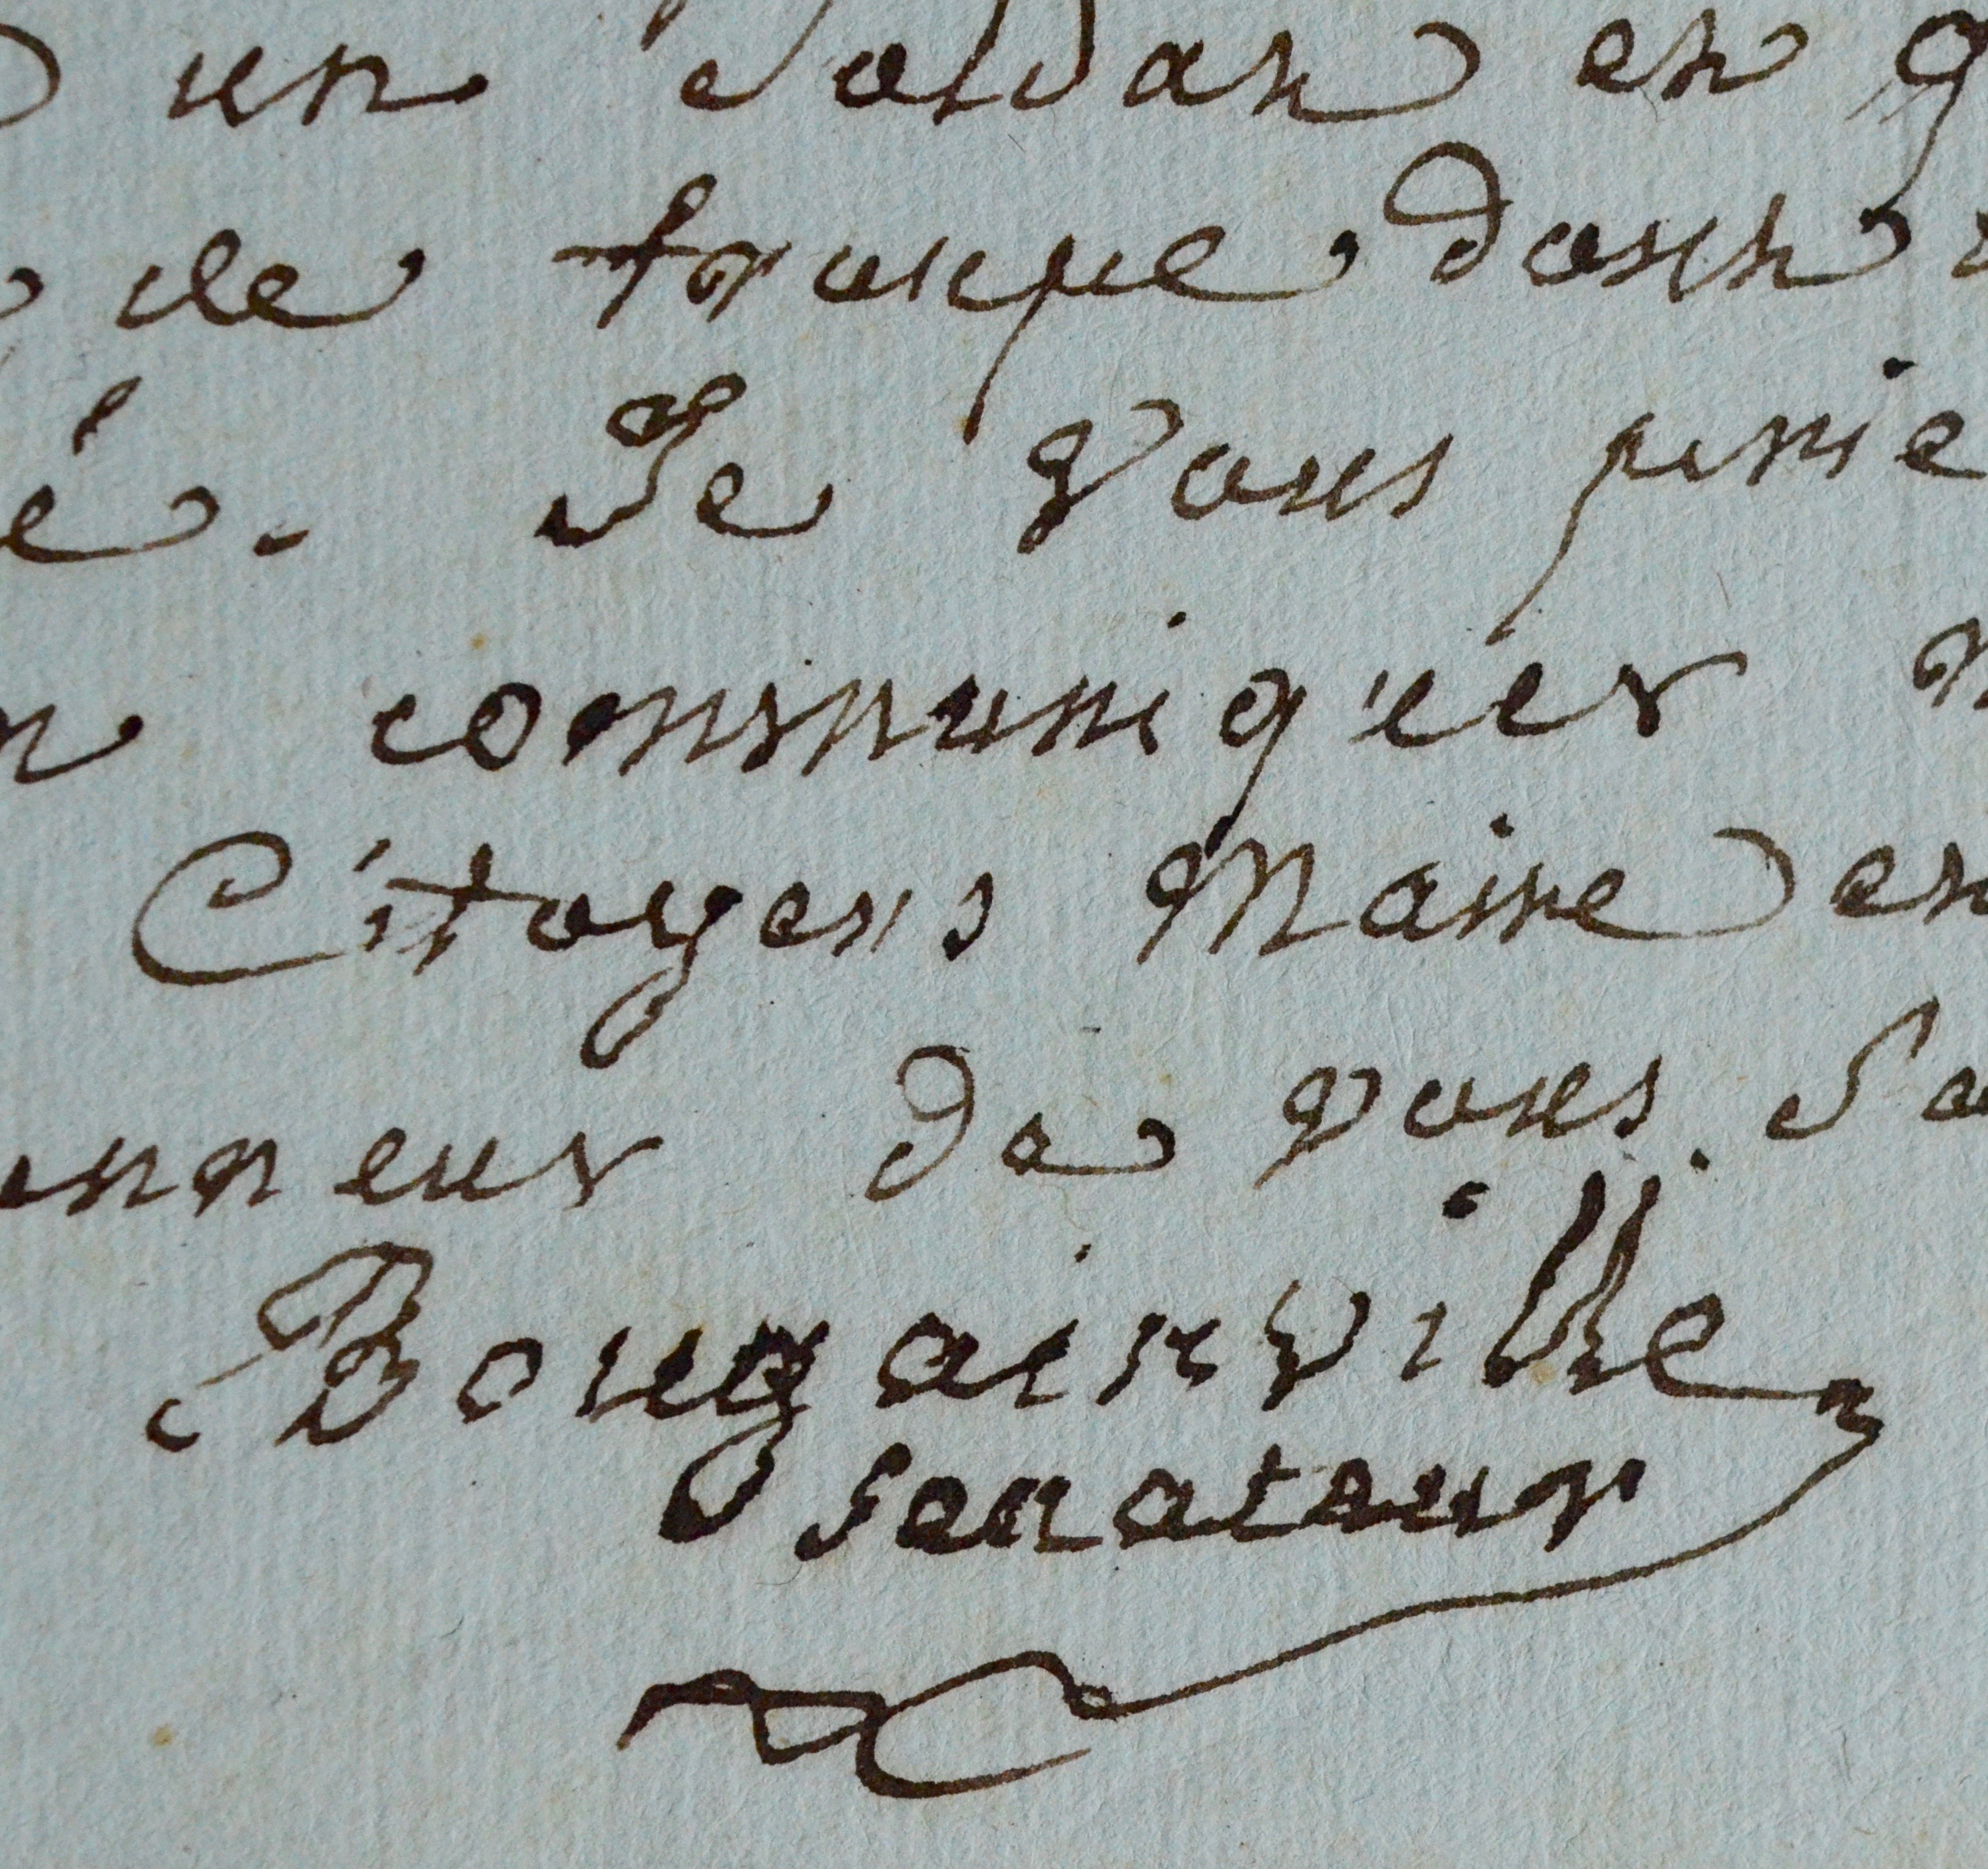 un soldat en
de troupe dont
é. Je vous prie
communiquer
Citoyens Maire et
onneur de vous sa
Bougainville
senateur